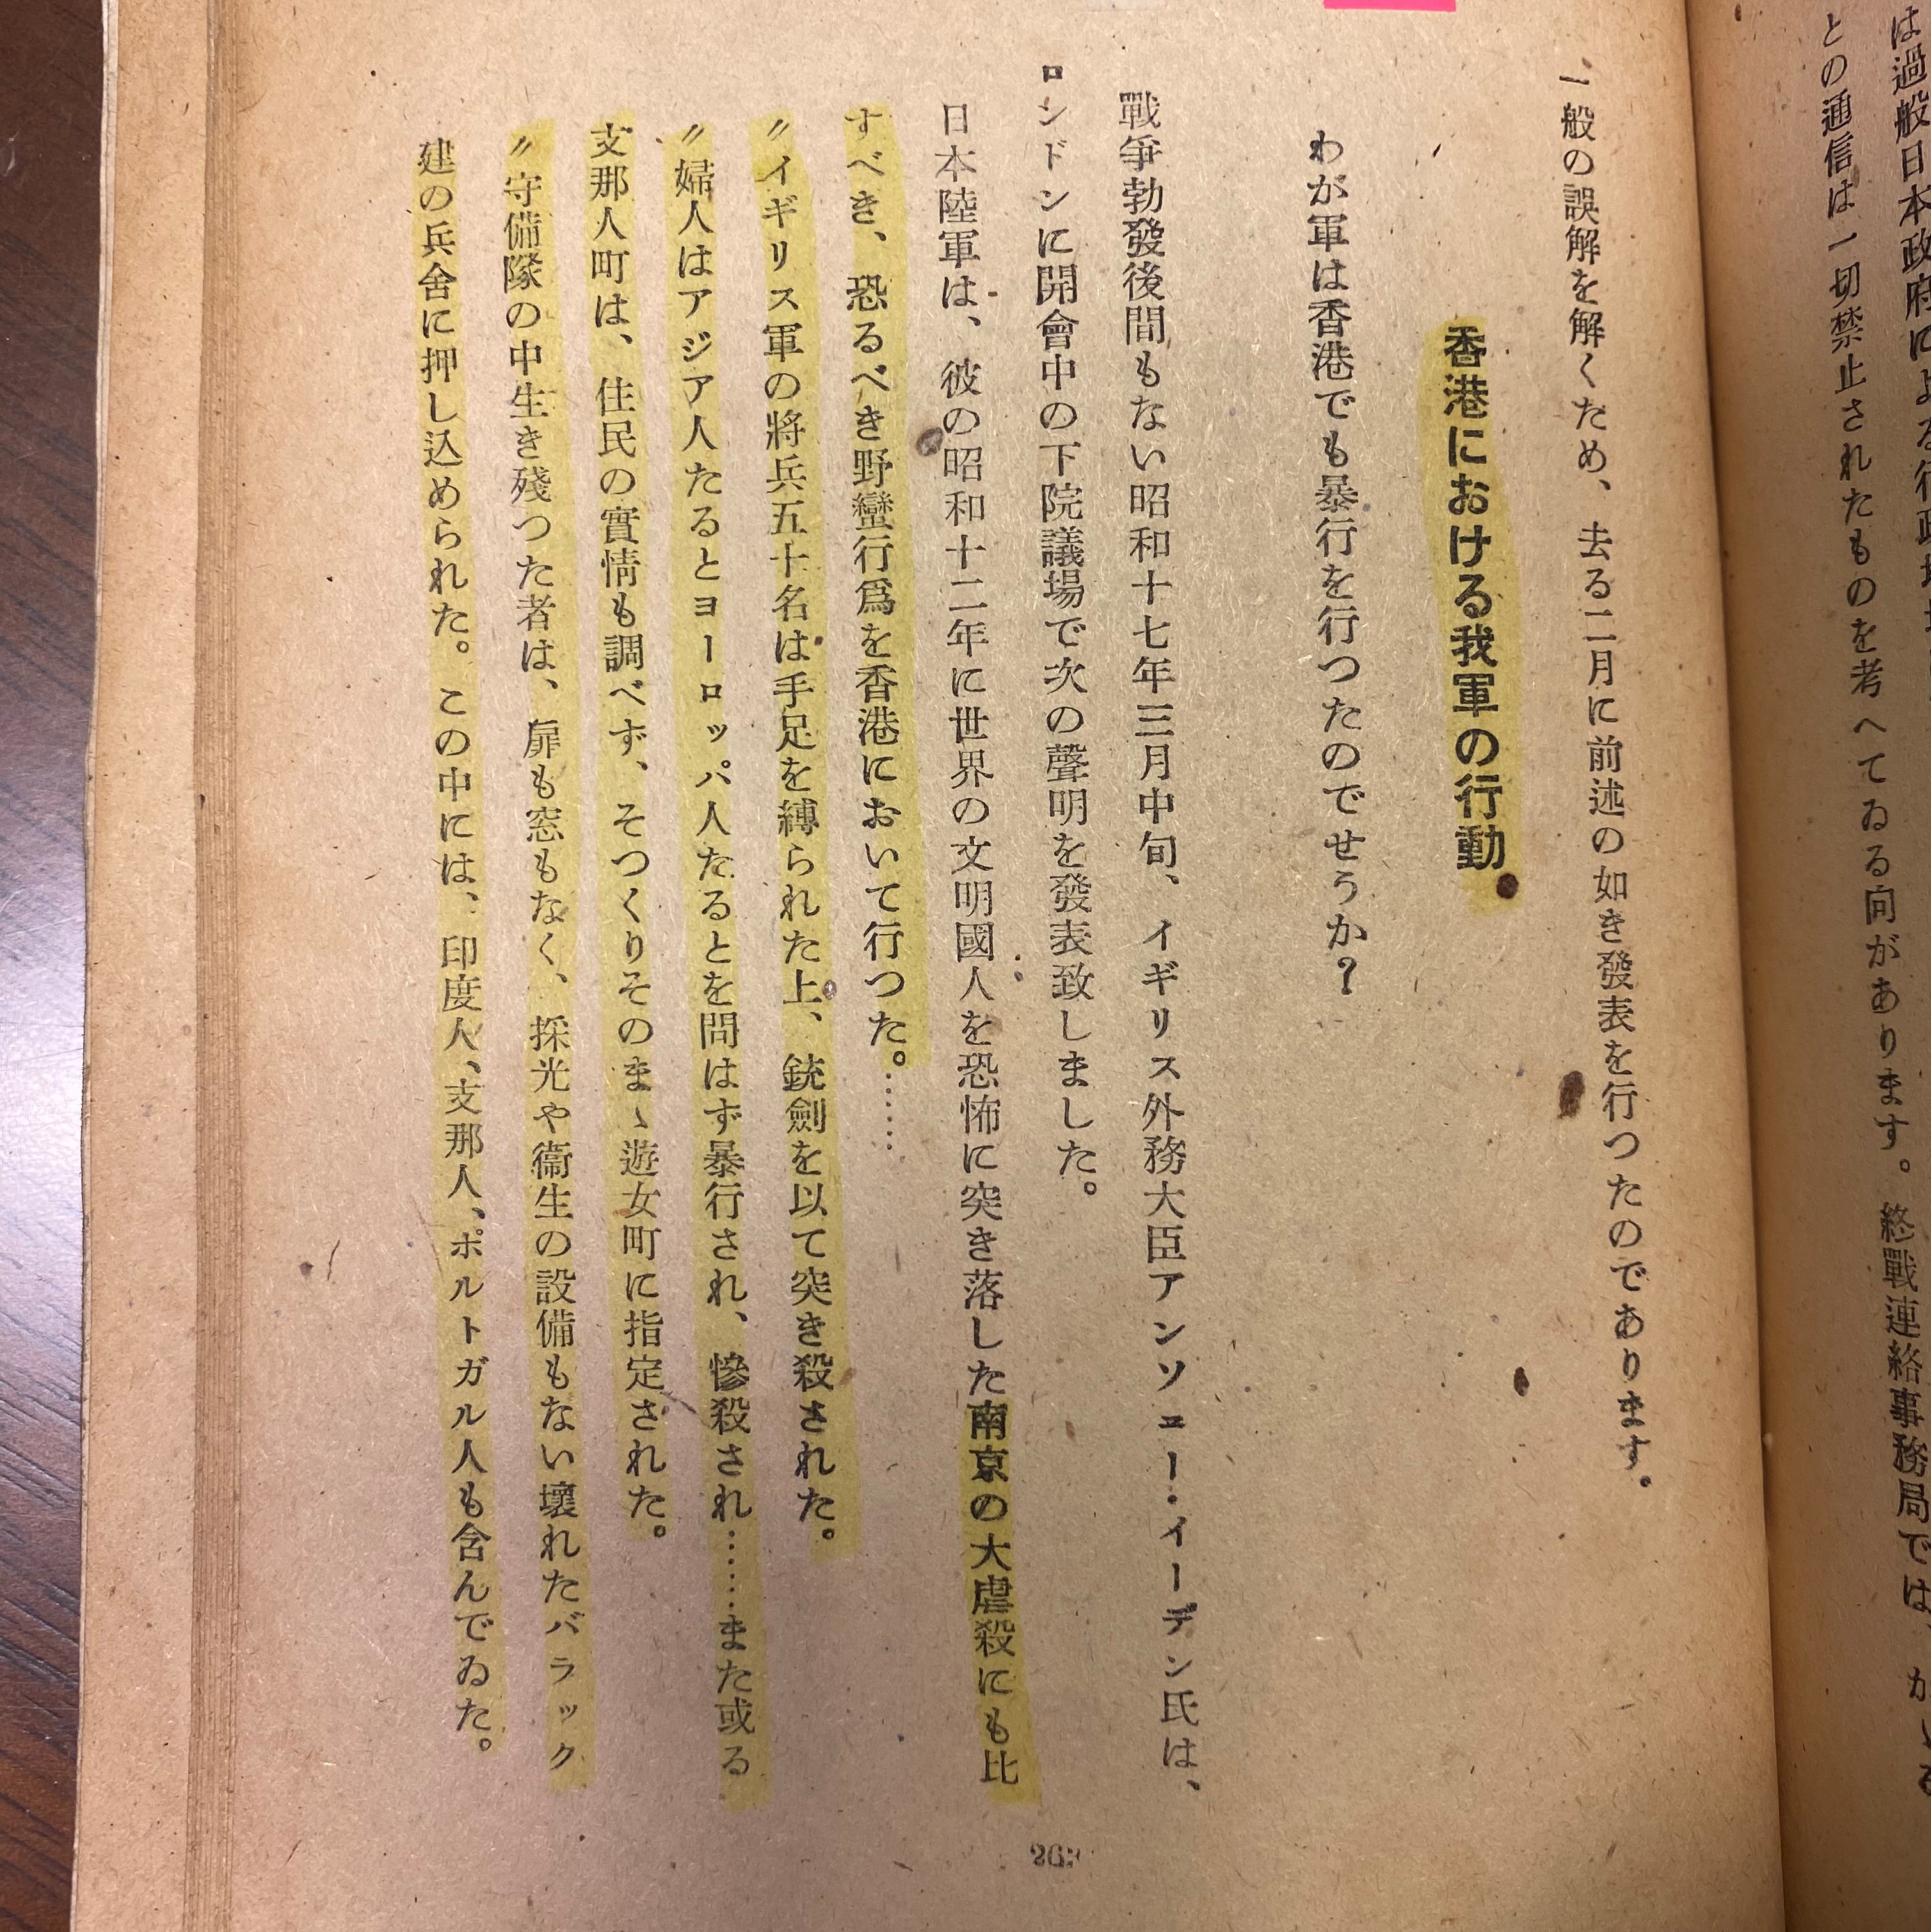 との通信は一切禁止されたものを考へてゐる向があります。終戰連絡事務局では、
一般の誤解を解くため、去る二月に前述の如き發表を行つたのであります。
香港における我軍の行動
わが軍は香港でも暴行を行つたのでせうか？
戰爭勃發後間もない昭和十七年三月中旬、イギリス外務大臣アンソニー・イーデン氏は、
ロンドンに開會中の下院議場で次の聲明を發表致しました。
日本陸軍は、彼の昭和十二年に世界の文明國人を恐怖に突き落した南京の大虐殺にも比
すべき、恐るべき野蠻行爲を香港において行つた。……
〃イギリス軍の將兵五十名は手足を縛られた上、銃劍を以て突き殺された。
〃婦人はアジア人たるとヨーロッパ人たるとを問はず暴行され、慘殺され……また或る
支那人町は、住民の實情も調べず、そつくりそのまゝ遊女町に指定された。
〃守備隊の中生き殘つた者は、扉も窓もなく、採光や衞生の設備もない壞れたバラック
建の兵舍に押し込められた。この中には、印度人、支那人、ポルトガル人も含んでゐた。